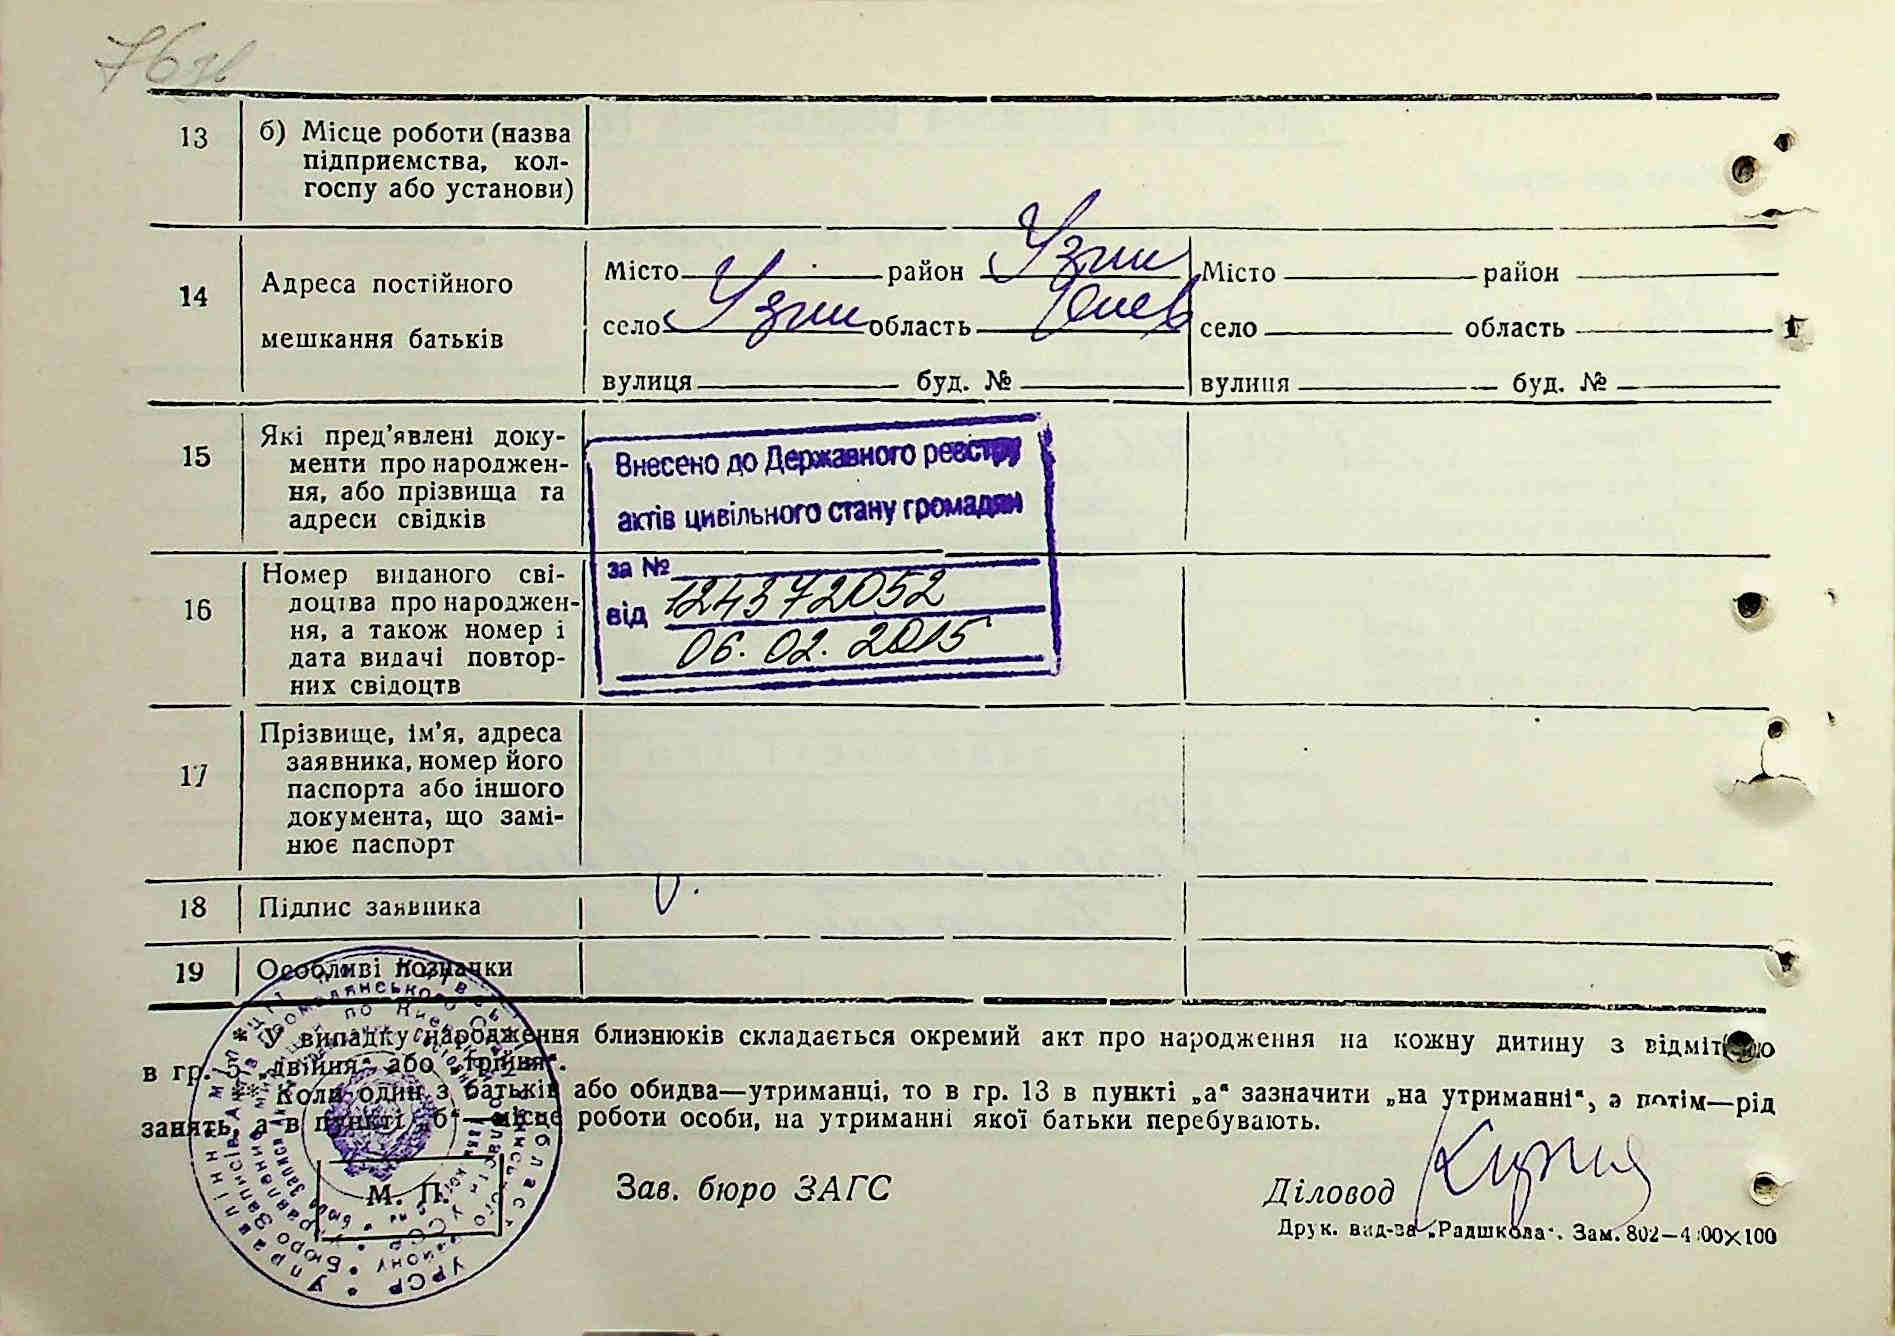 76
13 б) Місце роботи (назва
підприємства, кол-
госпу або установи)
14 Адреса постійного
мешкання батьків
Місто район Узин Місто район
село Узин область Киев село область
вулиця буд. № вулиця буд. №
15 Які пред'явлені доку-
менти про народжен-
ня, або прізвища та
адреси свідків
Внесено до Державного реєстру
актів цивільного стану громадян
за №
від 124372052
06.02.2015
16 Номер виданого сві-
доцтва про народжен-
ня, а також номер і
дата видачі повтор-
них свідоцтв
17 Прізвище, ім'я, адреса
заявника, номер його
паспорта або іншого
документа, що замі-
нює паспорт
18 Підпис заявника
19 Особливі позначки
* У випадку народження близнюків складається окремий акт про народження на кожну дитину з відміткою
в гр. 5 „двійня" або „трійня".
* Коли один з батьків або обидва—утриманці, то в гр. 13 в пункті „а" зазначити „на утриманні", а потім—рід
занять, а в пункті „б"—місце роботи особи, на утриманні якої батьки перебувають.
М. П. Зав. бюро ЗАГС Діловод
Друк. вид-ва „Радшкола". Зам. 802—4000×100